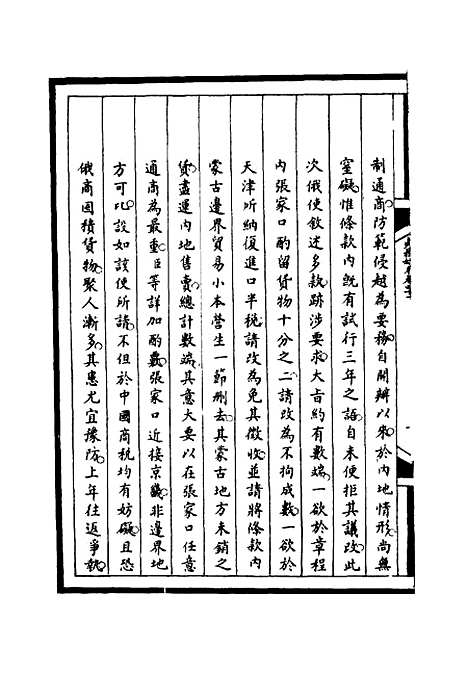 制通商防範侵越為要務自開辦以來於內地情形尚無
窒礙惟條款內既有試行三年之語自未便拒其議改此
次俄使敘述多款跡涉要求大㫖約有數端一欲於章程
內張家口酌留貨物十分之二請改為不拘成數一欲於
天津所納復進口半稅請改為免其徵收並請將條款內
蒙古邊界貿易小本營生一節刪去其蒙古地方未銷之
貨盡運內地售賣總計數端其意大要以在張家口任意
通商為最重臣等詳加酌覈張家口近接京畿非邊界地
方可比設如該使所請不但於中國商稅均有妨礙且恐
俄商囤積貨物聚人漸多其患尤宜豫防上年往返爭執